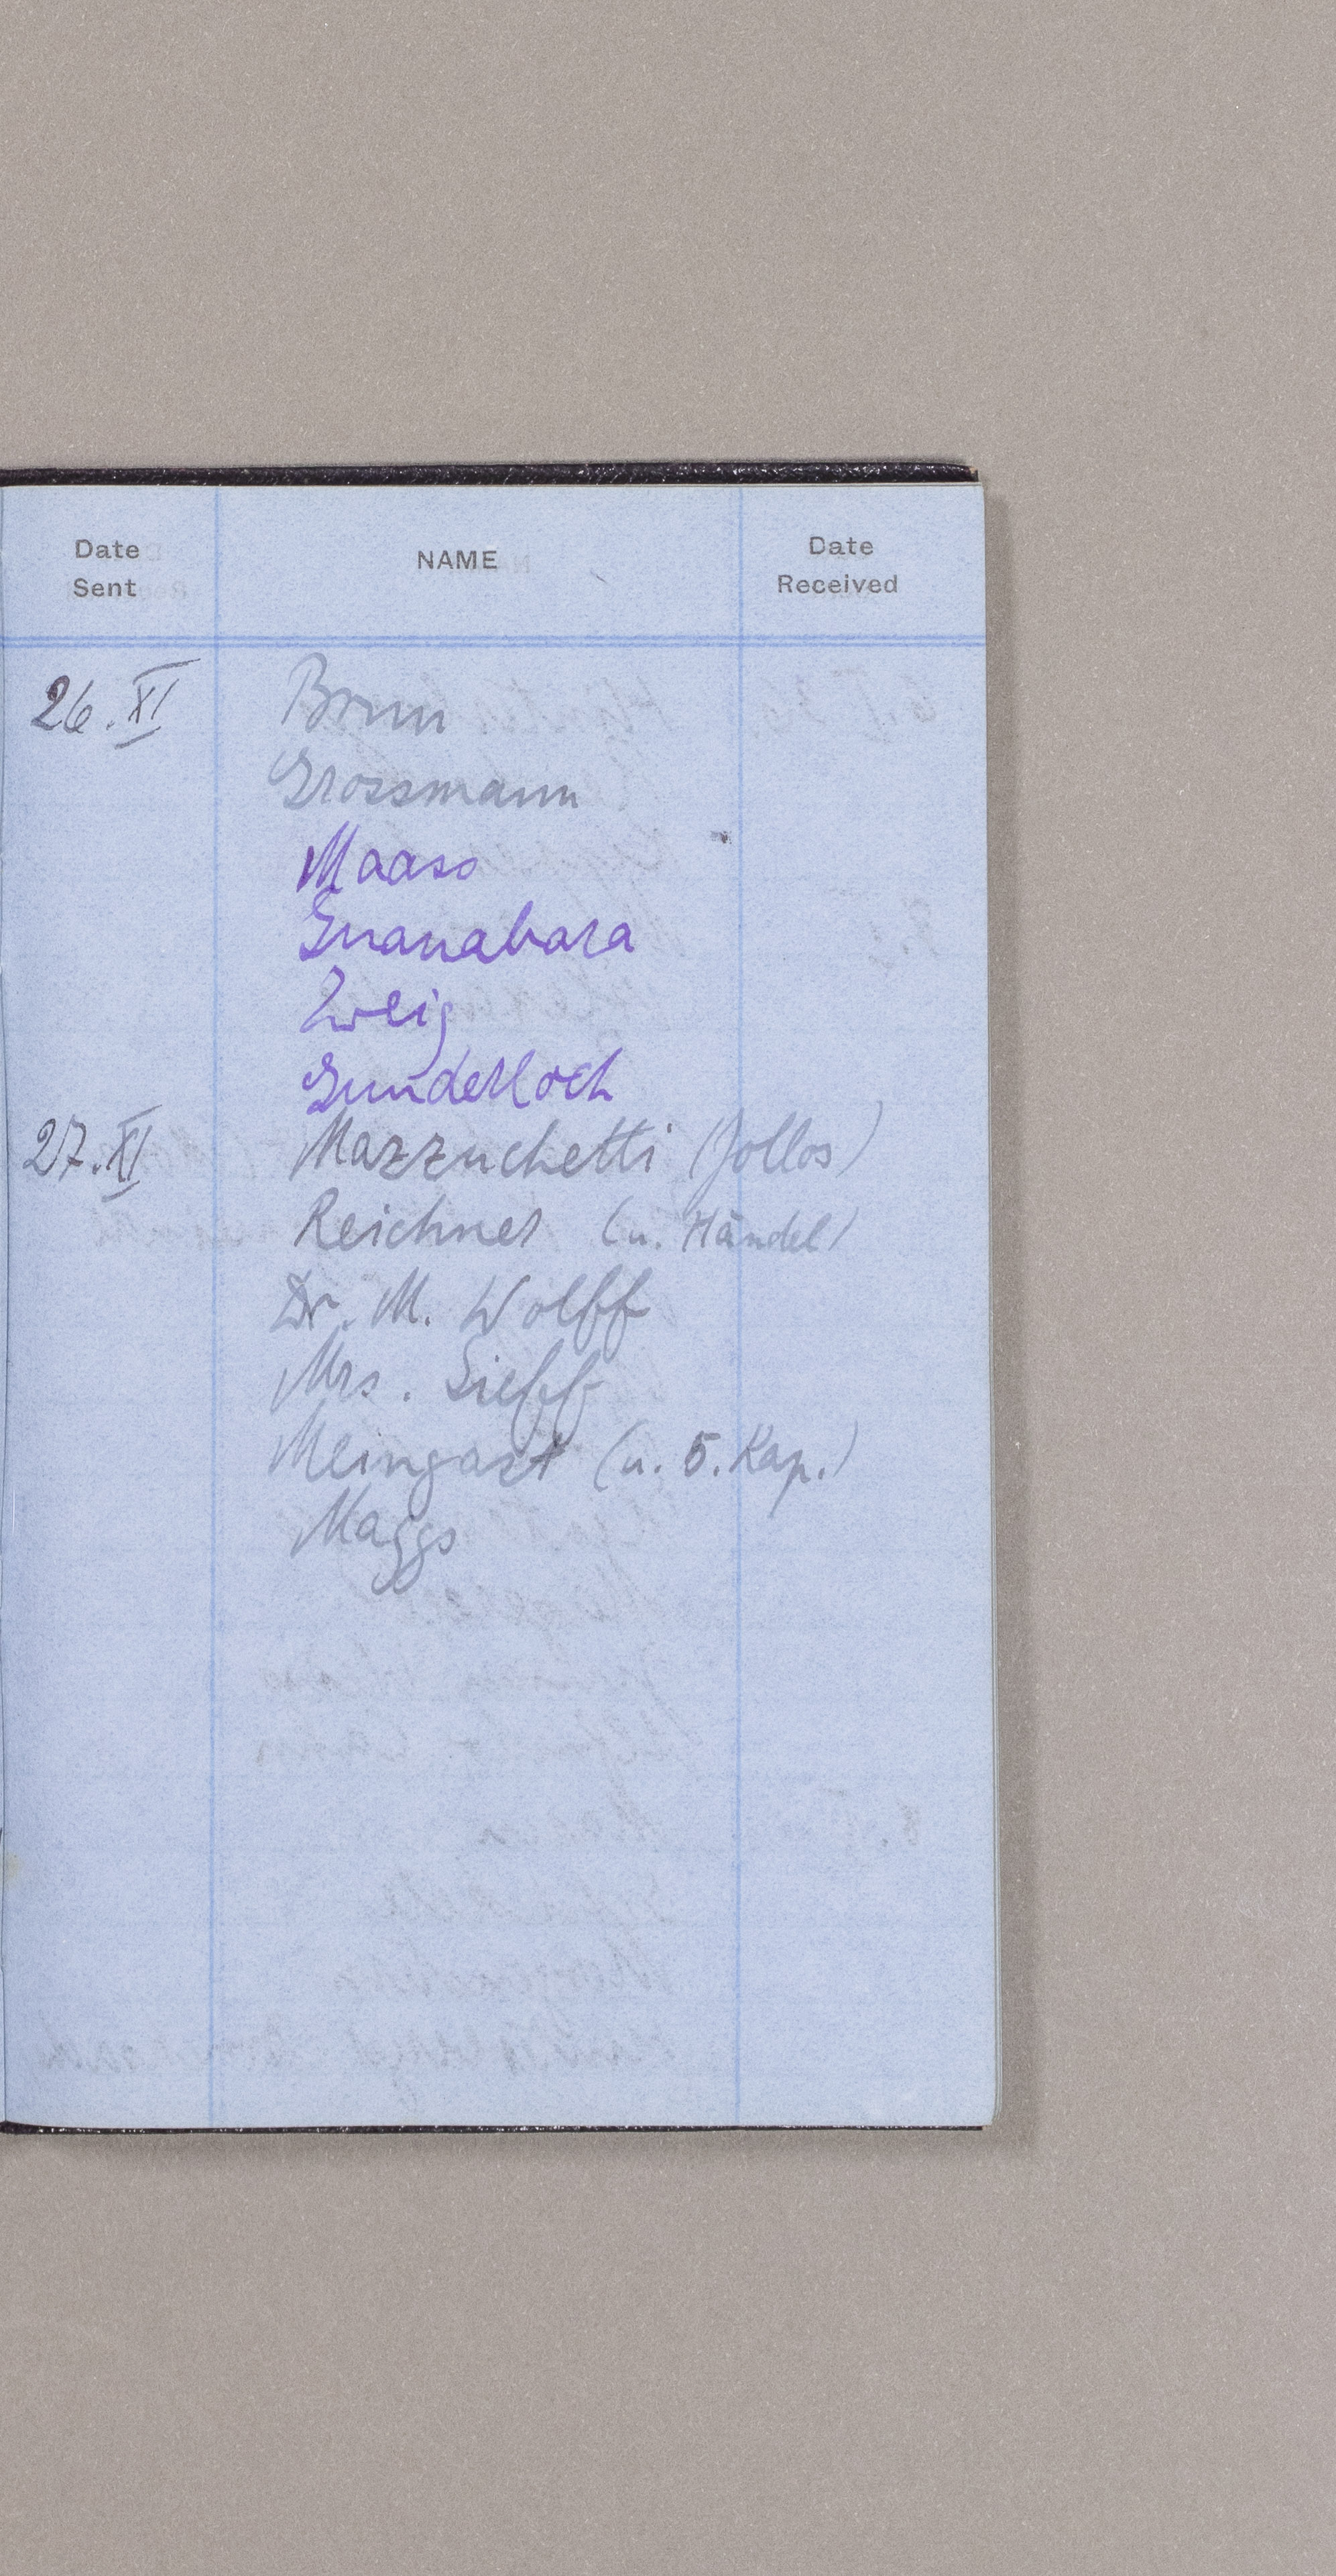 Date Sent NAME Date Received
26. XI Brun
Grossmann
Maass
Guanabara
Zweig
Gunderloch
27. XI Mazzuchetti (Jollos)
Reichner (u. Händel)
Dr. M. Wolff
Mrs. Sieff
Meingast (u. 5. Kap.)
Maggs